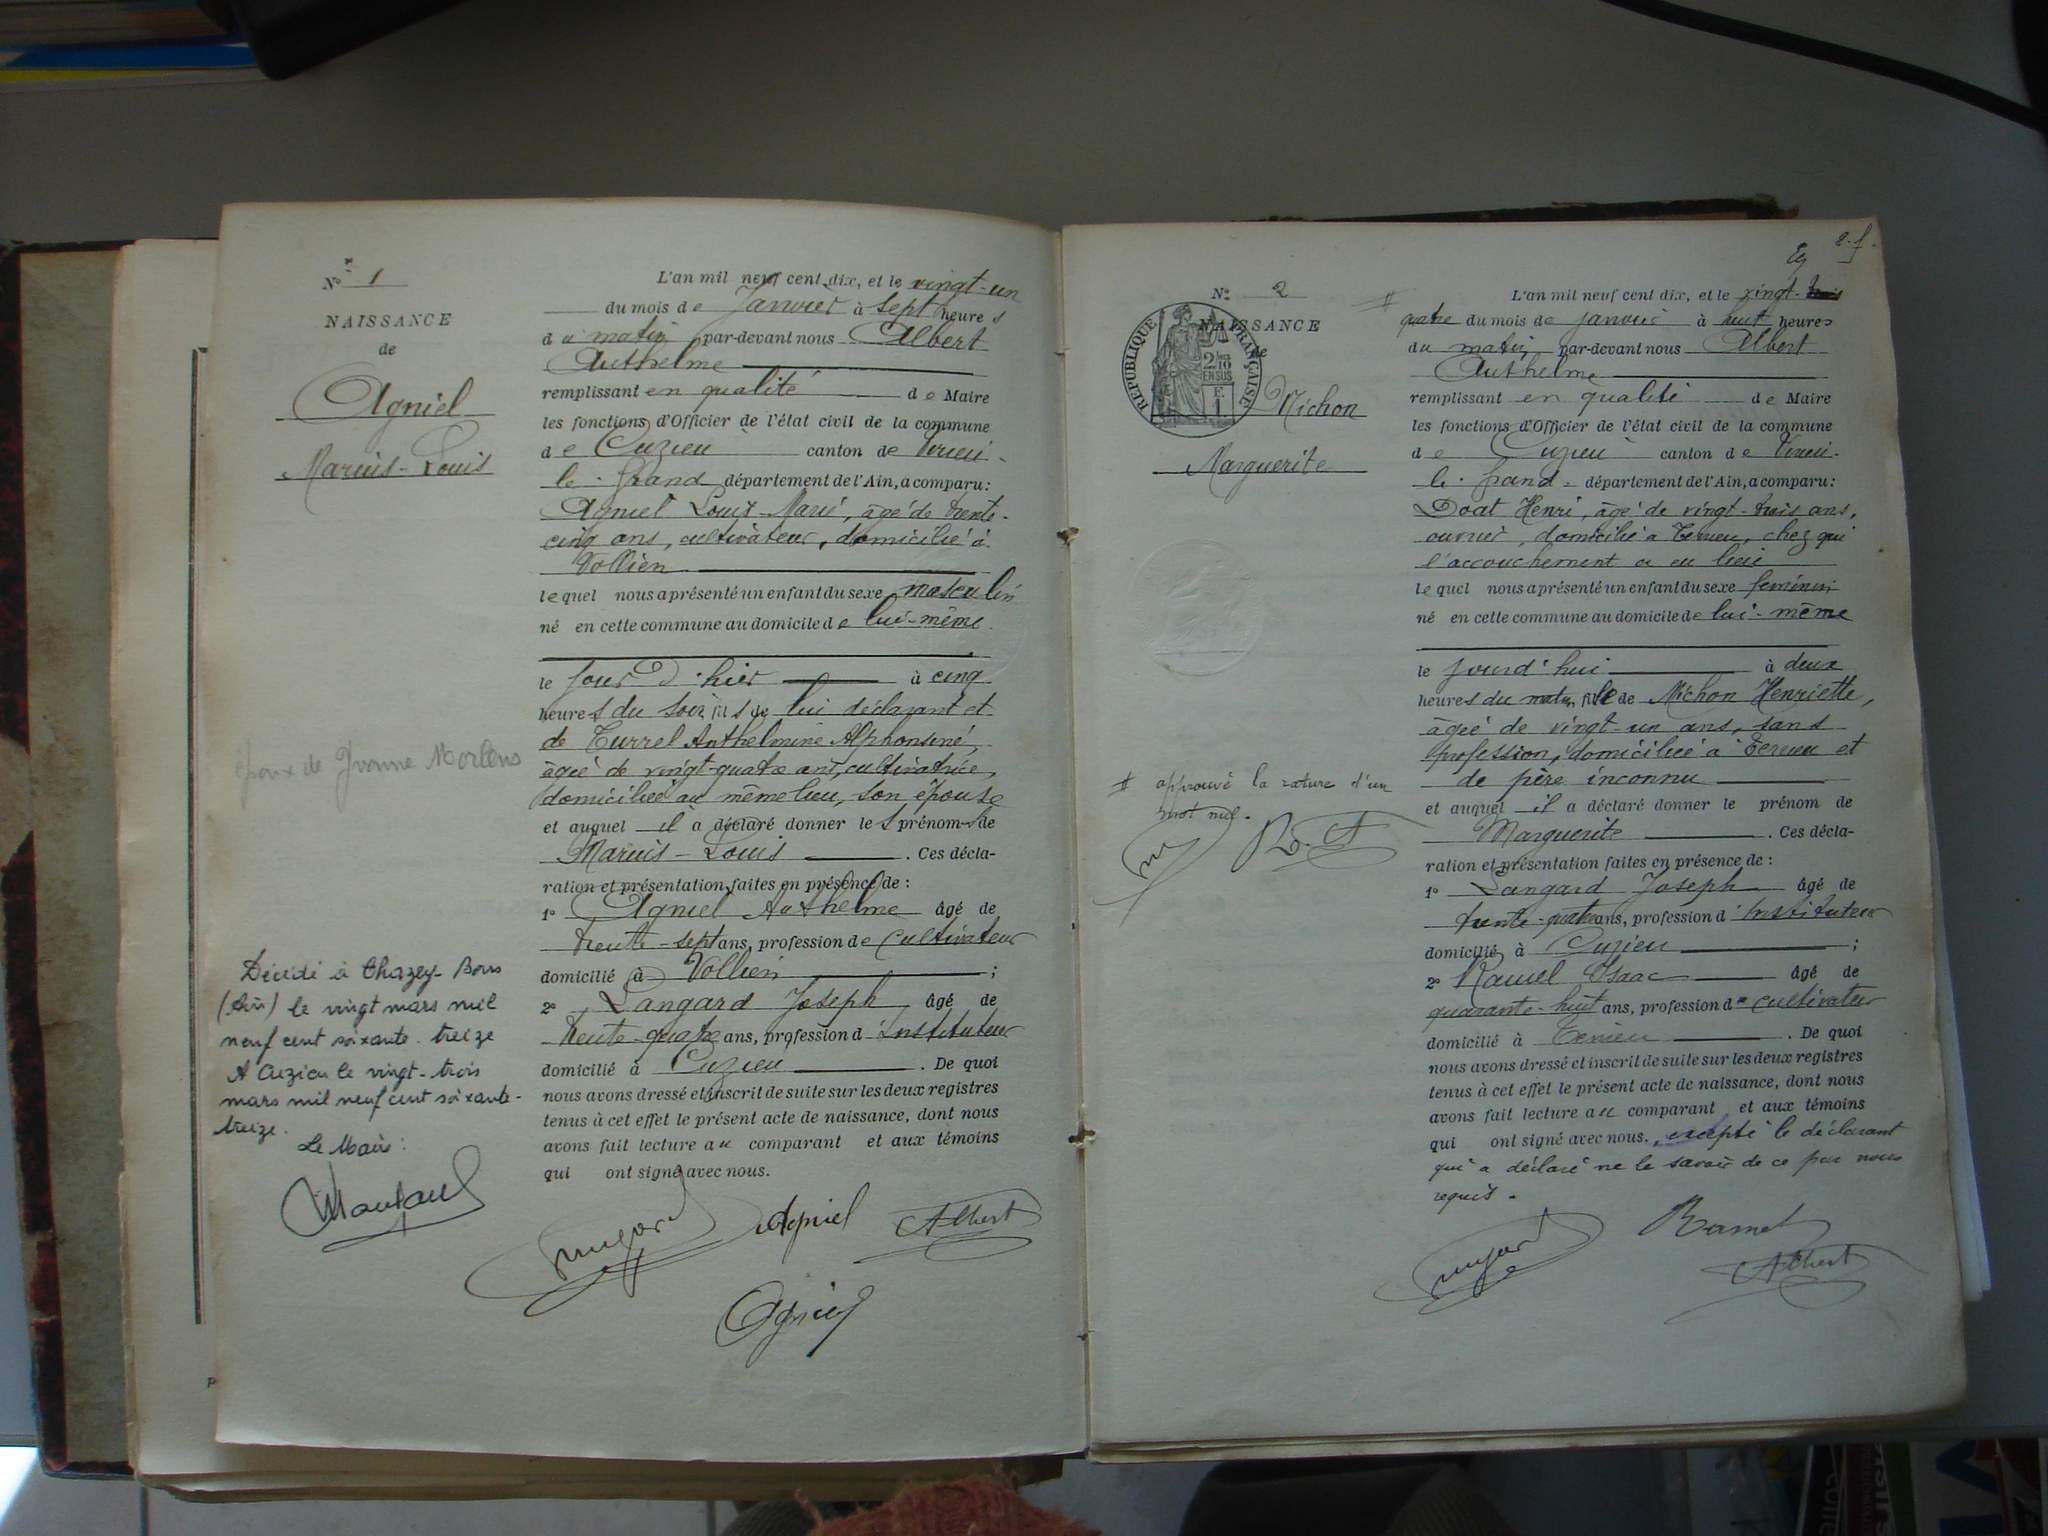 N° 1
NAISSANCE
de
Agniel
Marius-Louis
époux de Yvonne
Décédé à Chazey-Bons
(Ain) le vingt mars mil
neuf cent soixante-treize
A Cuzieu le vingt-trois
mars mil neuf cent soixante-
treize.
Le Maire:
L'an mil neuf cent dix, et le vingt-un
du mois de Janvier à sept heures
du matin, par-devant nous Albert
Anthelme
remplissant en qualité de Maire
les fonctions d'Officier de l'état civil de la commune
de Cuzieu canton de Virieu-
le-Grand département de l'Ain, a comparu:
Agniel Louis-Marie, âgé de trente-
cinq ans, cultivateur, domicilié à
Vollien
lequel nous a présenté un enfant du sexe masculin
né en cette commune au domicile de lui-même
le jour d'hier à cinq
heures du soir, fils de lui déclarant et
de Turrel Anthelmine Alphonsine,
âgée de vingt-quatre ans, cultivatrice,
domiciliée au même lieu, son épouse
et auquel il a déclaré donner les prénoms de
Marius-Louis . Ces décla-
ration et présentation faites en présence de :
1° Agniel Anthelme âgé de
trente-sept ans, profession de cultivateur
domicilié à Vollien ;
2° Langard Joseph âgé de
trente-quatre ans, profession d'Instituteur
domicilié à Cuzieu . De quoi
nous avons dressé et inscrit de suite sur les deux registres
tenus à cet effet le présent acte de naissance, dont nous
avons fait lecture au comparant et aux témoins
qui ont signé avec nous.
Agniel Albert
Agniel
2. f.
N° 2
NAISSANCE
de
RÉPUBLIQUE FRANÇAISE
2/10
EN SUS
F.
1
Michon
Marguerite
# approuvé la rature d'un
mot nul.
L'an mil neuf cent dix, et le vingt-trois
# quatre du mois de janvier à huit heures
du matin, par-devant nous Albert
Anthelme
remplissant en qualité de Maire
les fonctions d'Officier de l'état civil de la commune
de Cuzieu canton de Virieu-
le-Grand département de l'Ain, a comparu:
Doat Henri, âgé de vingt-trois ans,
ouvrier, domicilié à , chez qui
l'accouchement a eu lieu
lequel nous a présenté un enfant du sexe féminin
né en cette commune au domicile de lui-même
le jourd'hui à deux
heures du matin, fille de Michon Henriette,
âgée de vingt-un ans, sans
profession, domiciliée à et
de père inconnu
et auquel il a déclaré donner le prénom de
Marguerite . Ces décla-
ration et présentation faites en présence de :
1° Langard Joseph âgé de
trente-quatre ans, profession d'Instituteur
domicilié à Cuzieu ;
2° Isaac âgé de
quarante-huit ans, profession de cultivateur
domicilié à . De quoi
nous avons dressé et inscrit de suite sur les deux registres
tenus à cet effet le présent acte de naissance, dont nous
avons fait lecture au comparant et aux témoins
qui ont signé avec nous, excepté le déclarant
qui a déclaré ne le savoir de ce par nous
requis.
Albert